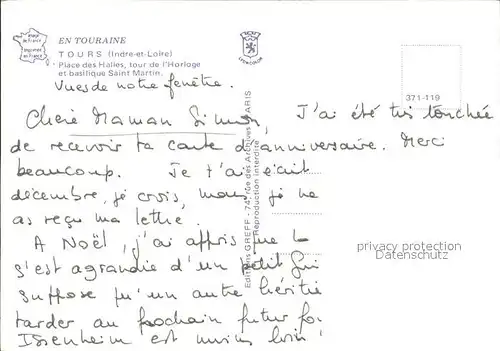 image de France
imprimé en France
EN TOURAINE
TOURS (Indre-et-Loire)
Place des Halles, tour de l'Horloge
et basilique Saint Martin.
LYNCOLOR
371-119
Vues de notre fenêtre.
Chère Maman Simon, J'ai été très touchée
de recevoir ta carte d'anniversaire. Merci
beaucoup. Je t'ai écrit
décembre, je crois, mais je ne
as reçu ma lettre.
A Noël, j'ai appris que la
s'est agrandie d'un petit
suppose qu'un autre hériti
tarder au prochain futur
Issenheim est moins loin
Editions GREFF - 74, rue des Archives - PARIS
Reproduction interdite
privacy protection
Datenschutz